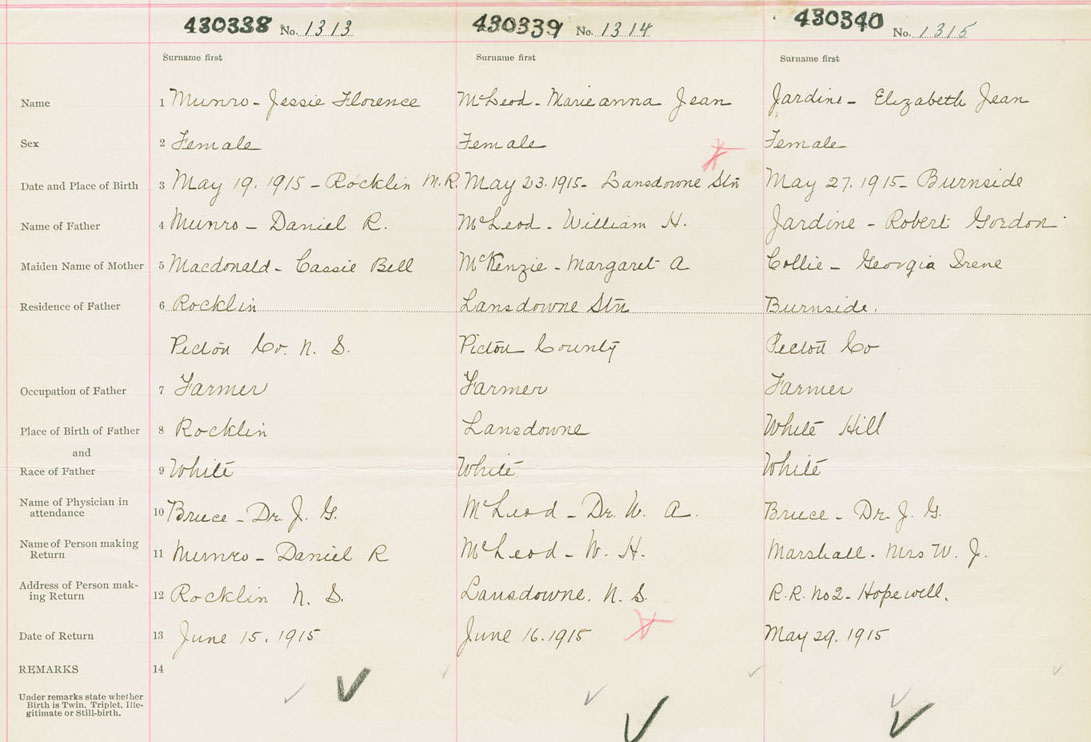 430338 No. 1313 430339 No. 1314 430340 No. 1315
Surname first Surname first Surname first
Name 1 Munro - Jessie Florence McLeod - Marieanna Jean Jardine - Elizabeth Jean
Sex 2 Female Female Female
Date and Place of Birth 3 May 19. 1915 - Rocklin M.R. May 23. 1915 - Lansdowne Stn May 27. 1915 - Burnside
Name of Father 4 Munro - Daniel R. McLeod - William H. Jardine - Robert Gordon
Maiden Name of Mother 5 Macdonald - Cassie Bell McKenzie - Margaret A Collie - Georgia Irene
Residence of Father 6 Rocklin Lansdowne Stn Burnside.
Pictou Co. N. S. Pictou County Pictou Co
Occupation of Father 7 Farmer Farmer Farmer
Place of Birth of Father 8 Rocklin Lansdowne White Hill
and
Race of Father 9 White White White
Name of Physician in
attendance 10 Bruce - Dr. J. G. McLeod - Dr. W. A. Bruce - Dr. J. G.
Name of Person making
Return 11 Munro - Daniel R McLeod - W. H. Marshall - Mrs W. J.
Address of Person mak-
ing Return 12 Rocklin N. S. Lansdowne. N. S. R.R. No 2 - Hopewell.
Date of Return 13 June 15. 1915 June 16. 1915 May 29. 1915
REMARKS 14
Under remarks state whether
Birth is Twin, Triplet, Ille-
gitimate or Still-birth.